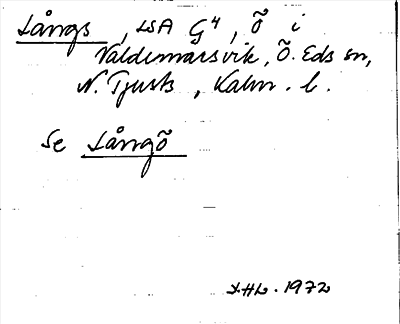 Långs, LSA G4, Ö i
Valdemarsvik, Ö. Eds sn,
N. Tjusts, Kalm. l.
Se Långö
1972